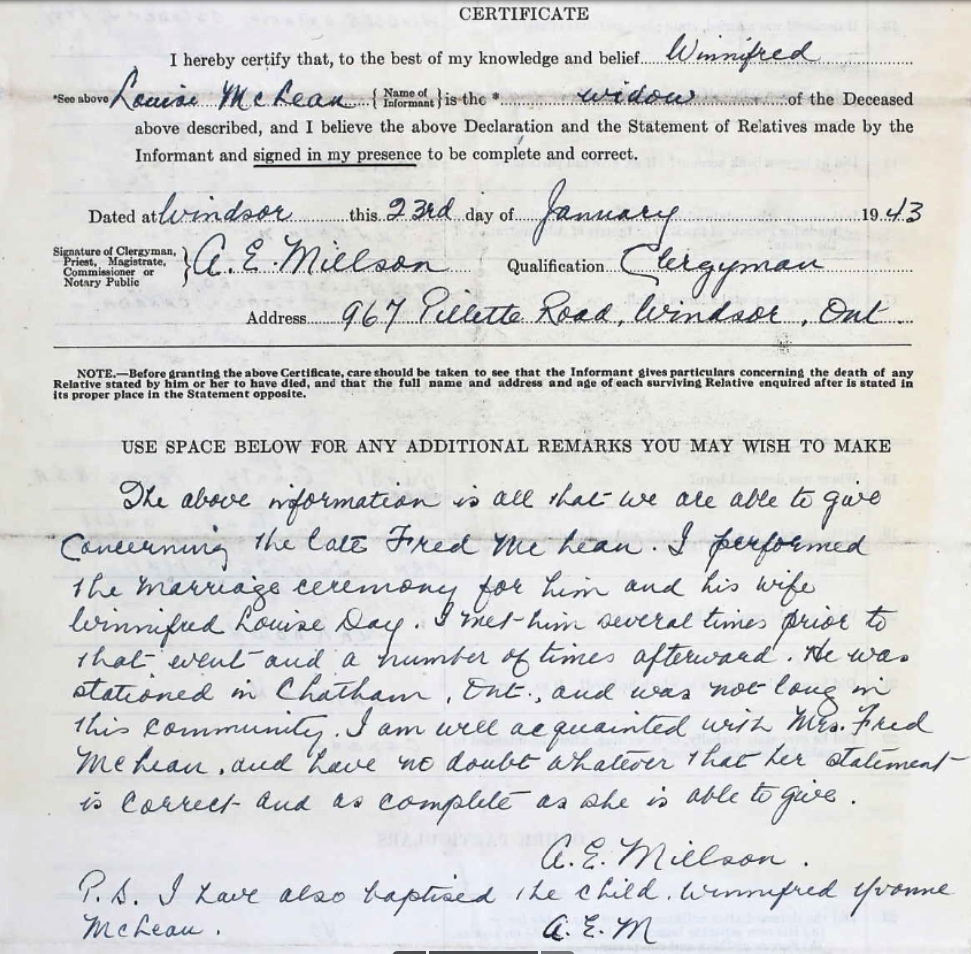 CERTIFICATE
I hereby certify that, to the best of my knowledge and belief Winnifred
*See above Louise McLean {Name of Informant} is the * widow of the Deceased
above described, and I believe the above Declaration and the Statement of Relatives made by the
Informant and signed in my presence to be complete and correct.
Dated at Windsor this 23rd day of January 1943
Signature of Clergyman, Priest, Magistrate, Commissioner or Notary Public } A. E. Millson Qualification Clergyman
Address 967 Pillette Road, Windsor, Ont.
NOTE.—Before granting the above Certificate, care should be taken to see that the Informant gives particulars concerning the death of any
Relative stated by him or her to have died, and that the full name and address and age of each surviving Relative enquired after is stated in
its proper place in the Statement opposite.
USE SPACE BELOW FOR ANY ADDITIONAL REMARKS YOU MAY WISH TO MAKE
The above information is all that we are able to give
concerning the late Fred McLean. I performed
the marriage ceremony for him and his wife
Winnifred Louise Day. I met him several times prior to
that event and a number of times afterward. He was
stationed in Chatham, Ont., and was not long in
this community. I am well acquainted with Mrs. Fred
McLean, and have no doubt whatever that her statement
is correct and as complete as she is able to give.
A. E. Millson.
P.S. I have also baptised the child, Winnifred Yvonne
McLean. A. E. M